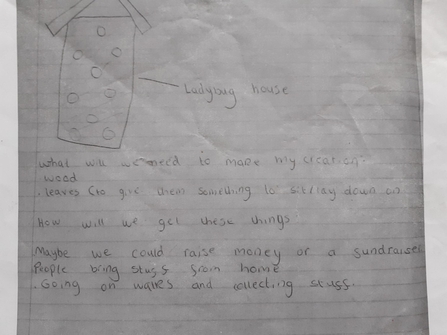 Ladybug house
what will we need to make my creation.
wood
. leaves (to give them something to sit/lay down on
How will we get these things
Maybe we could raise money or a sundraise
People bring stuss srom home
. Going on walks and collecting stuss.